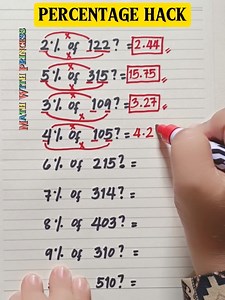 PERCENTAGE HACK
2% of 122? = 2.44
5% of 315? = 15.75
3% of 109? = 3.27
4% of 105? = 4.2
6% of 215? =
7% of 314? =
8% of 403? =
9% of 310? =
510? =
MATH WITH PRINCESS